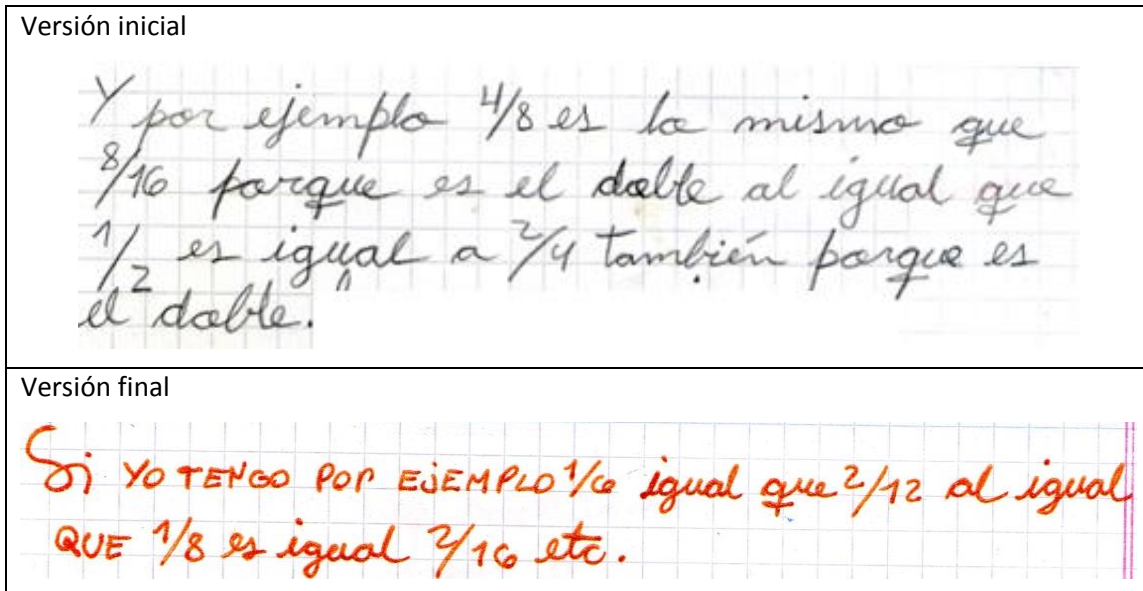 Versión inicial
Y por ejemplo 4/8 es lo mismo que
8/16 porque es el doble al igual que
1/2 es igual a 2/4 también porque es
el doble.
Versión final
Si YO TENGO POR EJEMPLO 1/6 igual que 2/12 al igual
QUE 1/8 es igual 2/16 etc.